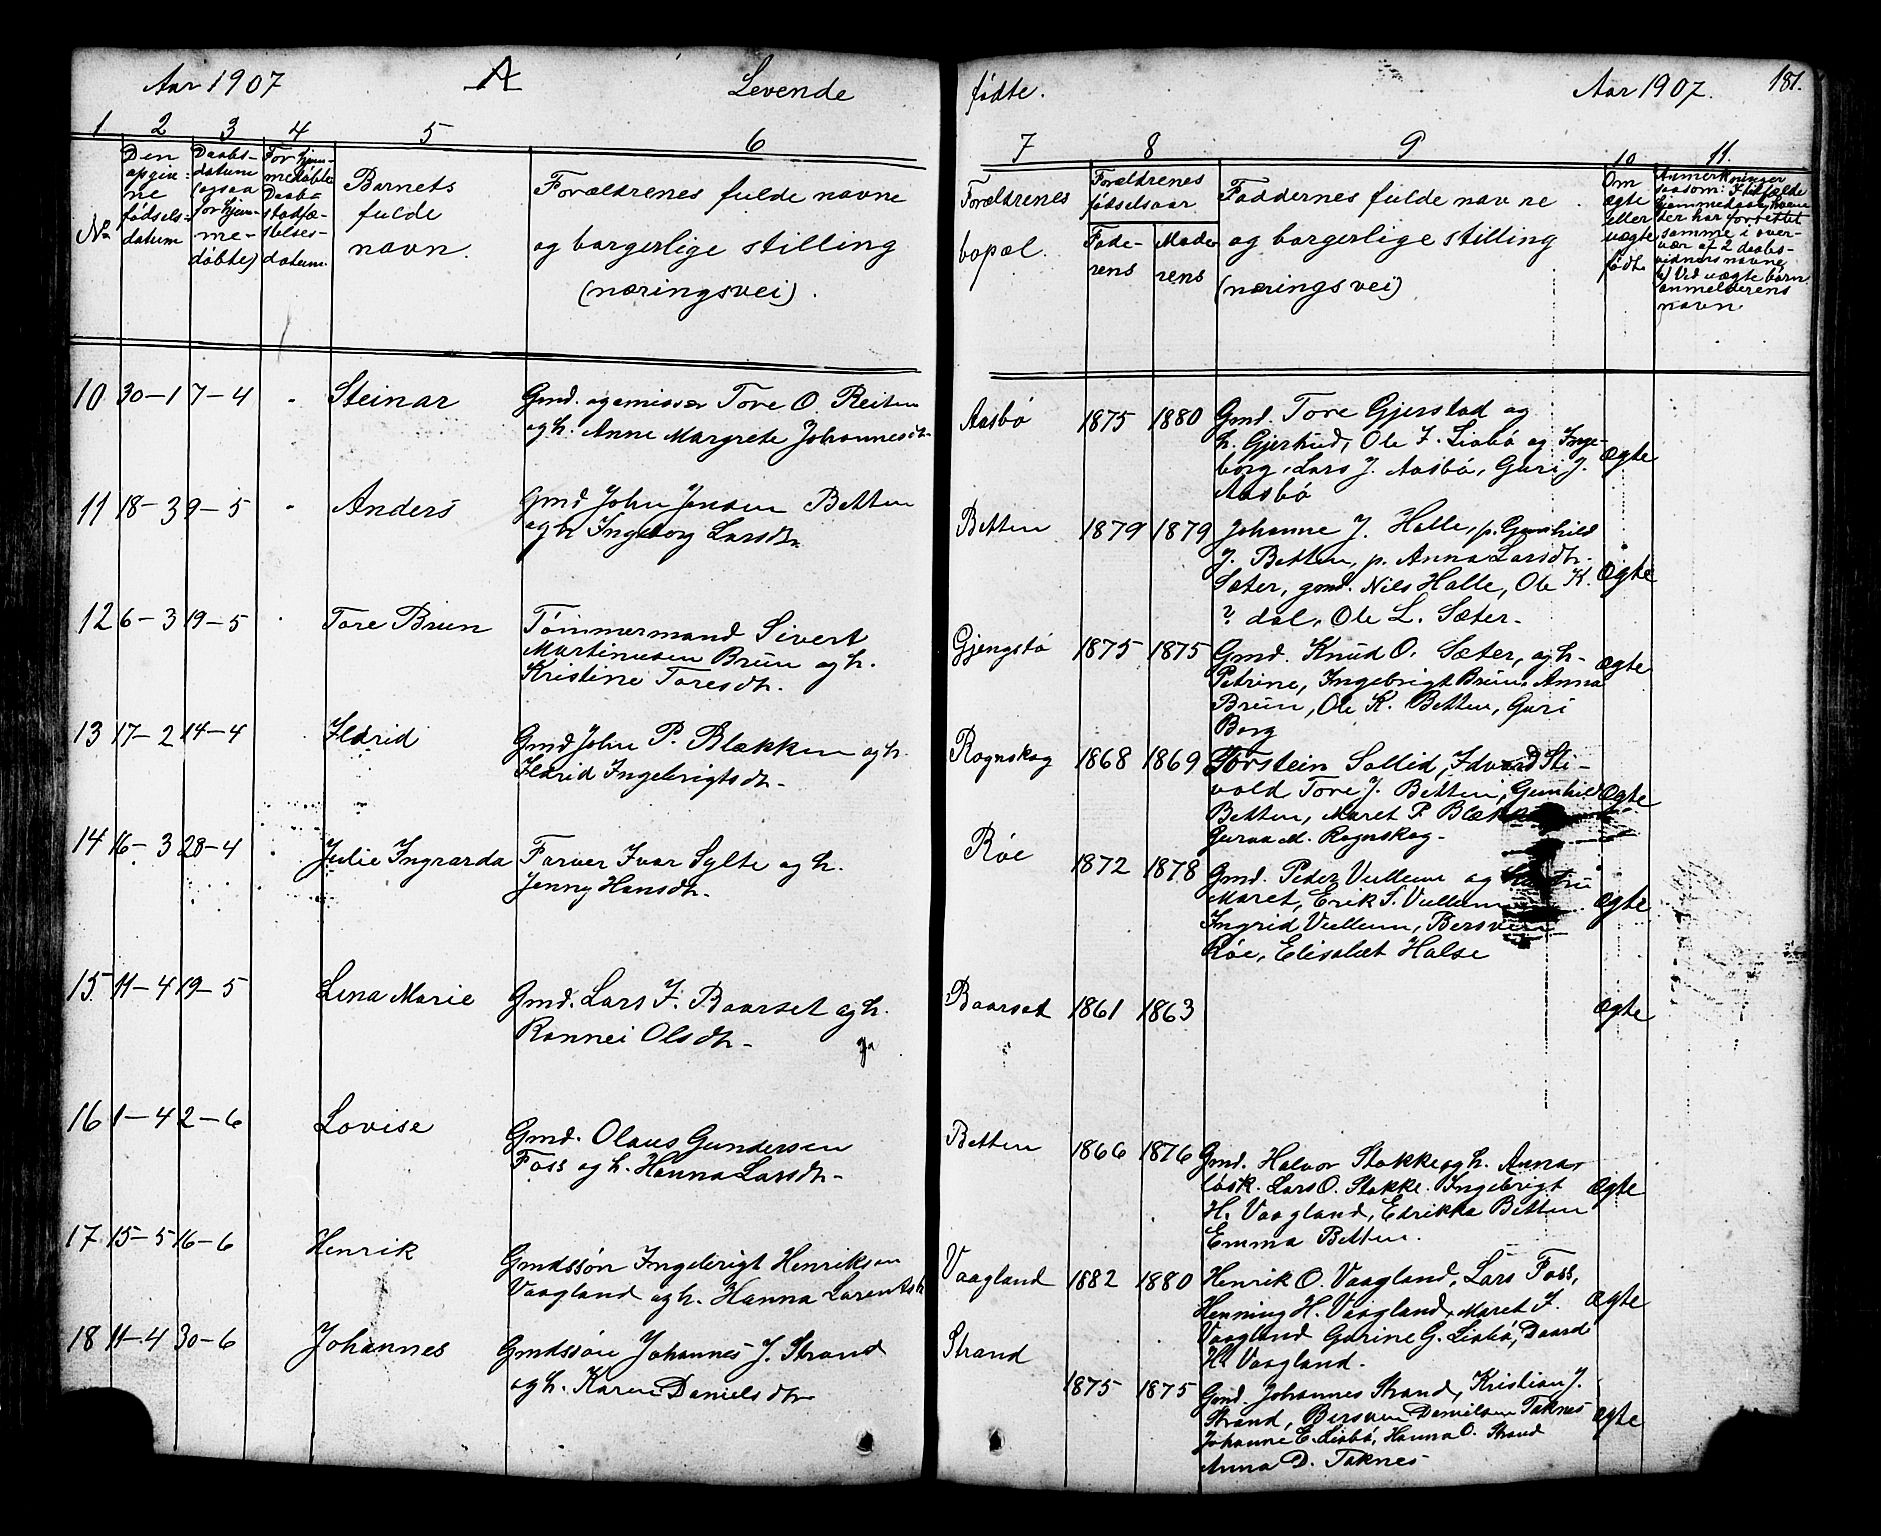 Aar 1907
A
Levende
fødte.
Aar 1907.
181.
1 2 3 4 5 6
7 8 9 10 11.
No
Den
opgiv-
ne
fødsels-
datum
Daabs-
datum
(ogsaa
for hjem-
me-
døbte)
For hjem-
medøbte
Daabs-
stadfæ-
stelses-
datum.
Barnets
fulde
navn.
Forældrenes fulde navne
og borgerlige stilling
(næringsvei).
Forældrenes
bopæl.
Forældrenes
fødselsaar
Fade-
rens
Mode-
rens
Faddernes fulde navne
og borgerlige stilling
(næringsvei)
Om
ægte
eller
uægte
født.
Anmerkninger
saasom: I tilfælde
hjemmedaab, hvem
der har forrettet
samme i over-
vær af 2 daabs-
vidners navne
b) Ved uægte børn
anmelderens
navn
10 30-1 7-4 Steinar
Gmd. og emissær Tore O. Reiten
og h. Anne Margrete Johannesdtr.
Aasbø 1875 1880
Gmd. Tore Gjerstad og
h. Gjertrud, Ole I. Liabø og Inge-
borg, Lars J. Aasbø, Guri J.
Aasbø
Ægte
11 18-3 9-5 Anders
Gmd John Jensen Betten
og h Ingeborg Larsdtr
Betten 1879 1879
Johanne J. Halle, p. Gunhild
J. Betten, p. Anna Larsdtr.
Sæter, gmd. Nils Halle, Ole K.
? dal, Ole L. Sæter.
Ægte
12 6-3 19-5 Tore Brun
Tømmermand Sivert
Martinusen Brun og h.
Kristine Toresdtr.
Gjengstø 1875 1875
Gmd. Knud O. Sæter, og h-
Petrine, Ingebrigt Brun, Anna
Brun, Ole K. Betten, Guri
Borg
Ægte
13 17-2 14-4 Ildrid
Gmd John P. Blækken og h.
Ildrid Ingebrigtsdtr.
Rognskog 1868 1869
Torstein Sollid, Edvard Sti-
vold Tore J. Betten, Gunhild
Betten, Maret P. Blækk
Guraa M. Rognskog.
Ægte
14 16-3 28-4 Julie Ingvarda
Farver Ivar Sylte og h.
Jenny Hansdtr.
Røe 1872 1878
Gmd. Peder Vullum og
Maret, Erik S. Vullum
Ingrid Vullum, Bersven
Røe, Elisabet Halse
Ægte
15 11-4 19-5 Lina Marie
Gmd. Lars I. Baarset og h.
Rannei Olsdtr.
Baarset 1861 1863
Ægte
16 1-4 2-6 Lovise
Gmd. Olaus Gundersen
Foss og h. Hanna Larsdtr.
Betten 1866 1876
Gmd. Halvor Stokke og h. Anna,
løsk. Lars O. Stokke. Ingebrigt
H. Vaagland, Edrikka Betten
Emma Betten.
Ægte
17 15-5 16-6 Henrik
Gmdssøn Ingebrigt Henriksen
Vaagland og h. Hanna Larentsd
Vaagland 1882 1880
Henrik O. Vaagland, Lars Foss,
Henning H. Vaagland, Maret I.
Vaagland Gurine G. Liabø,
H. Vaagland.
Ægte
18 11-4 30-6 Johannes
Gmdssøn Johannes J. Strand
og h. Karen Danielsdtr
Strand 1875 1875
Gmd. Johannes Strand, Kristian J.
Strand, Bersven Danielsen Taknes
Johanne E. Liabø, Hanna O. Strand
Anna D. Taknes
Ægte